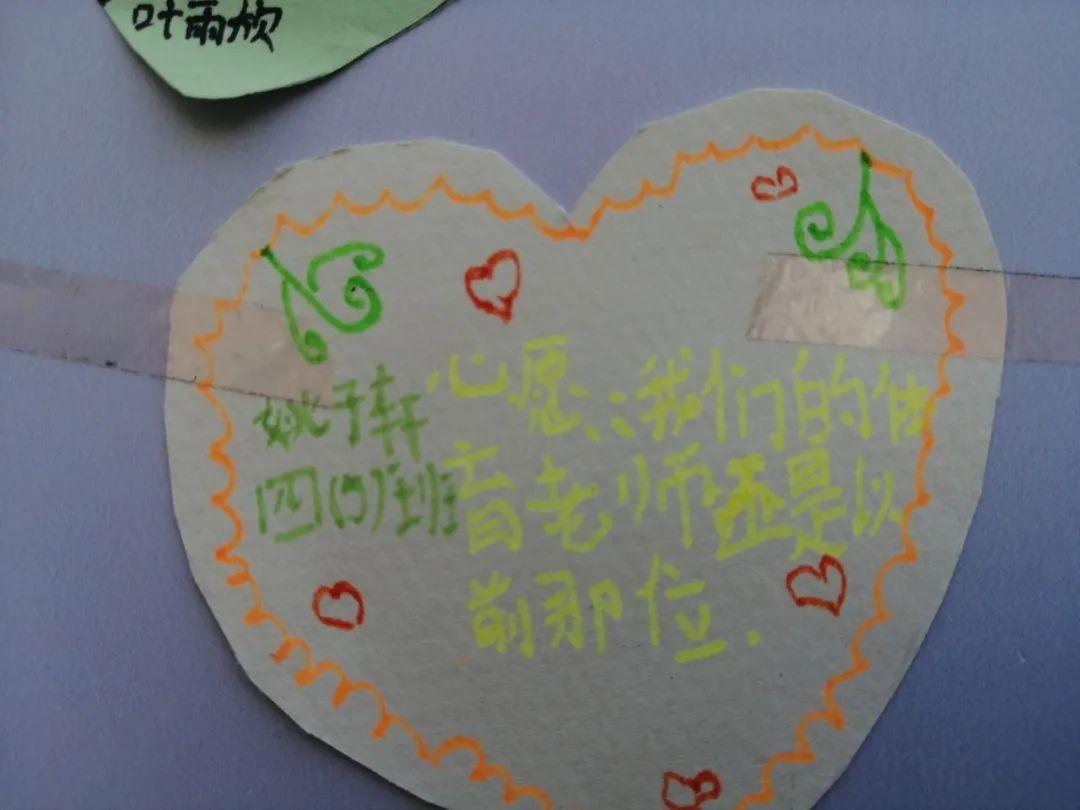 叶雨欣
姚子轩
四班
心愿:我们的体
育老师还是以
前那位.